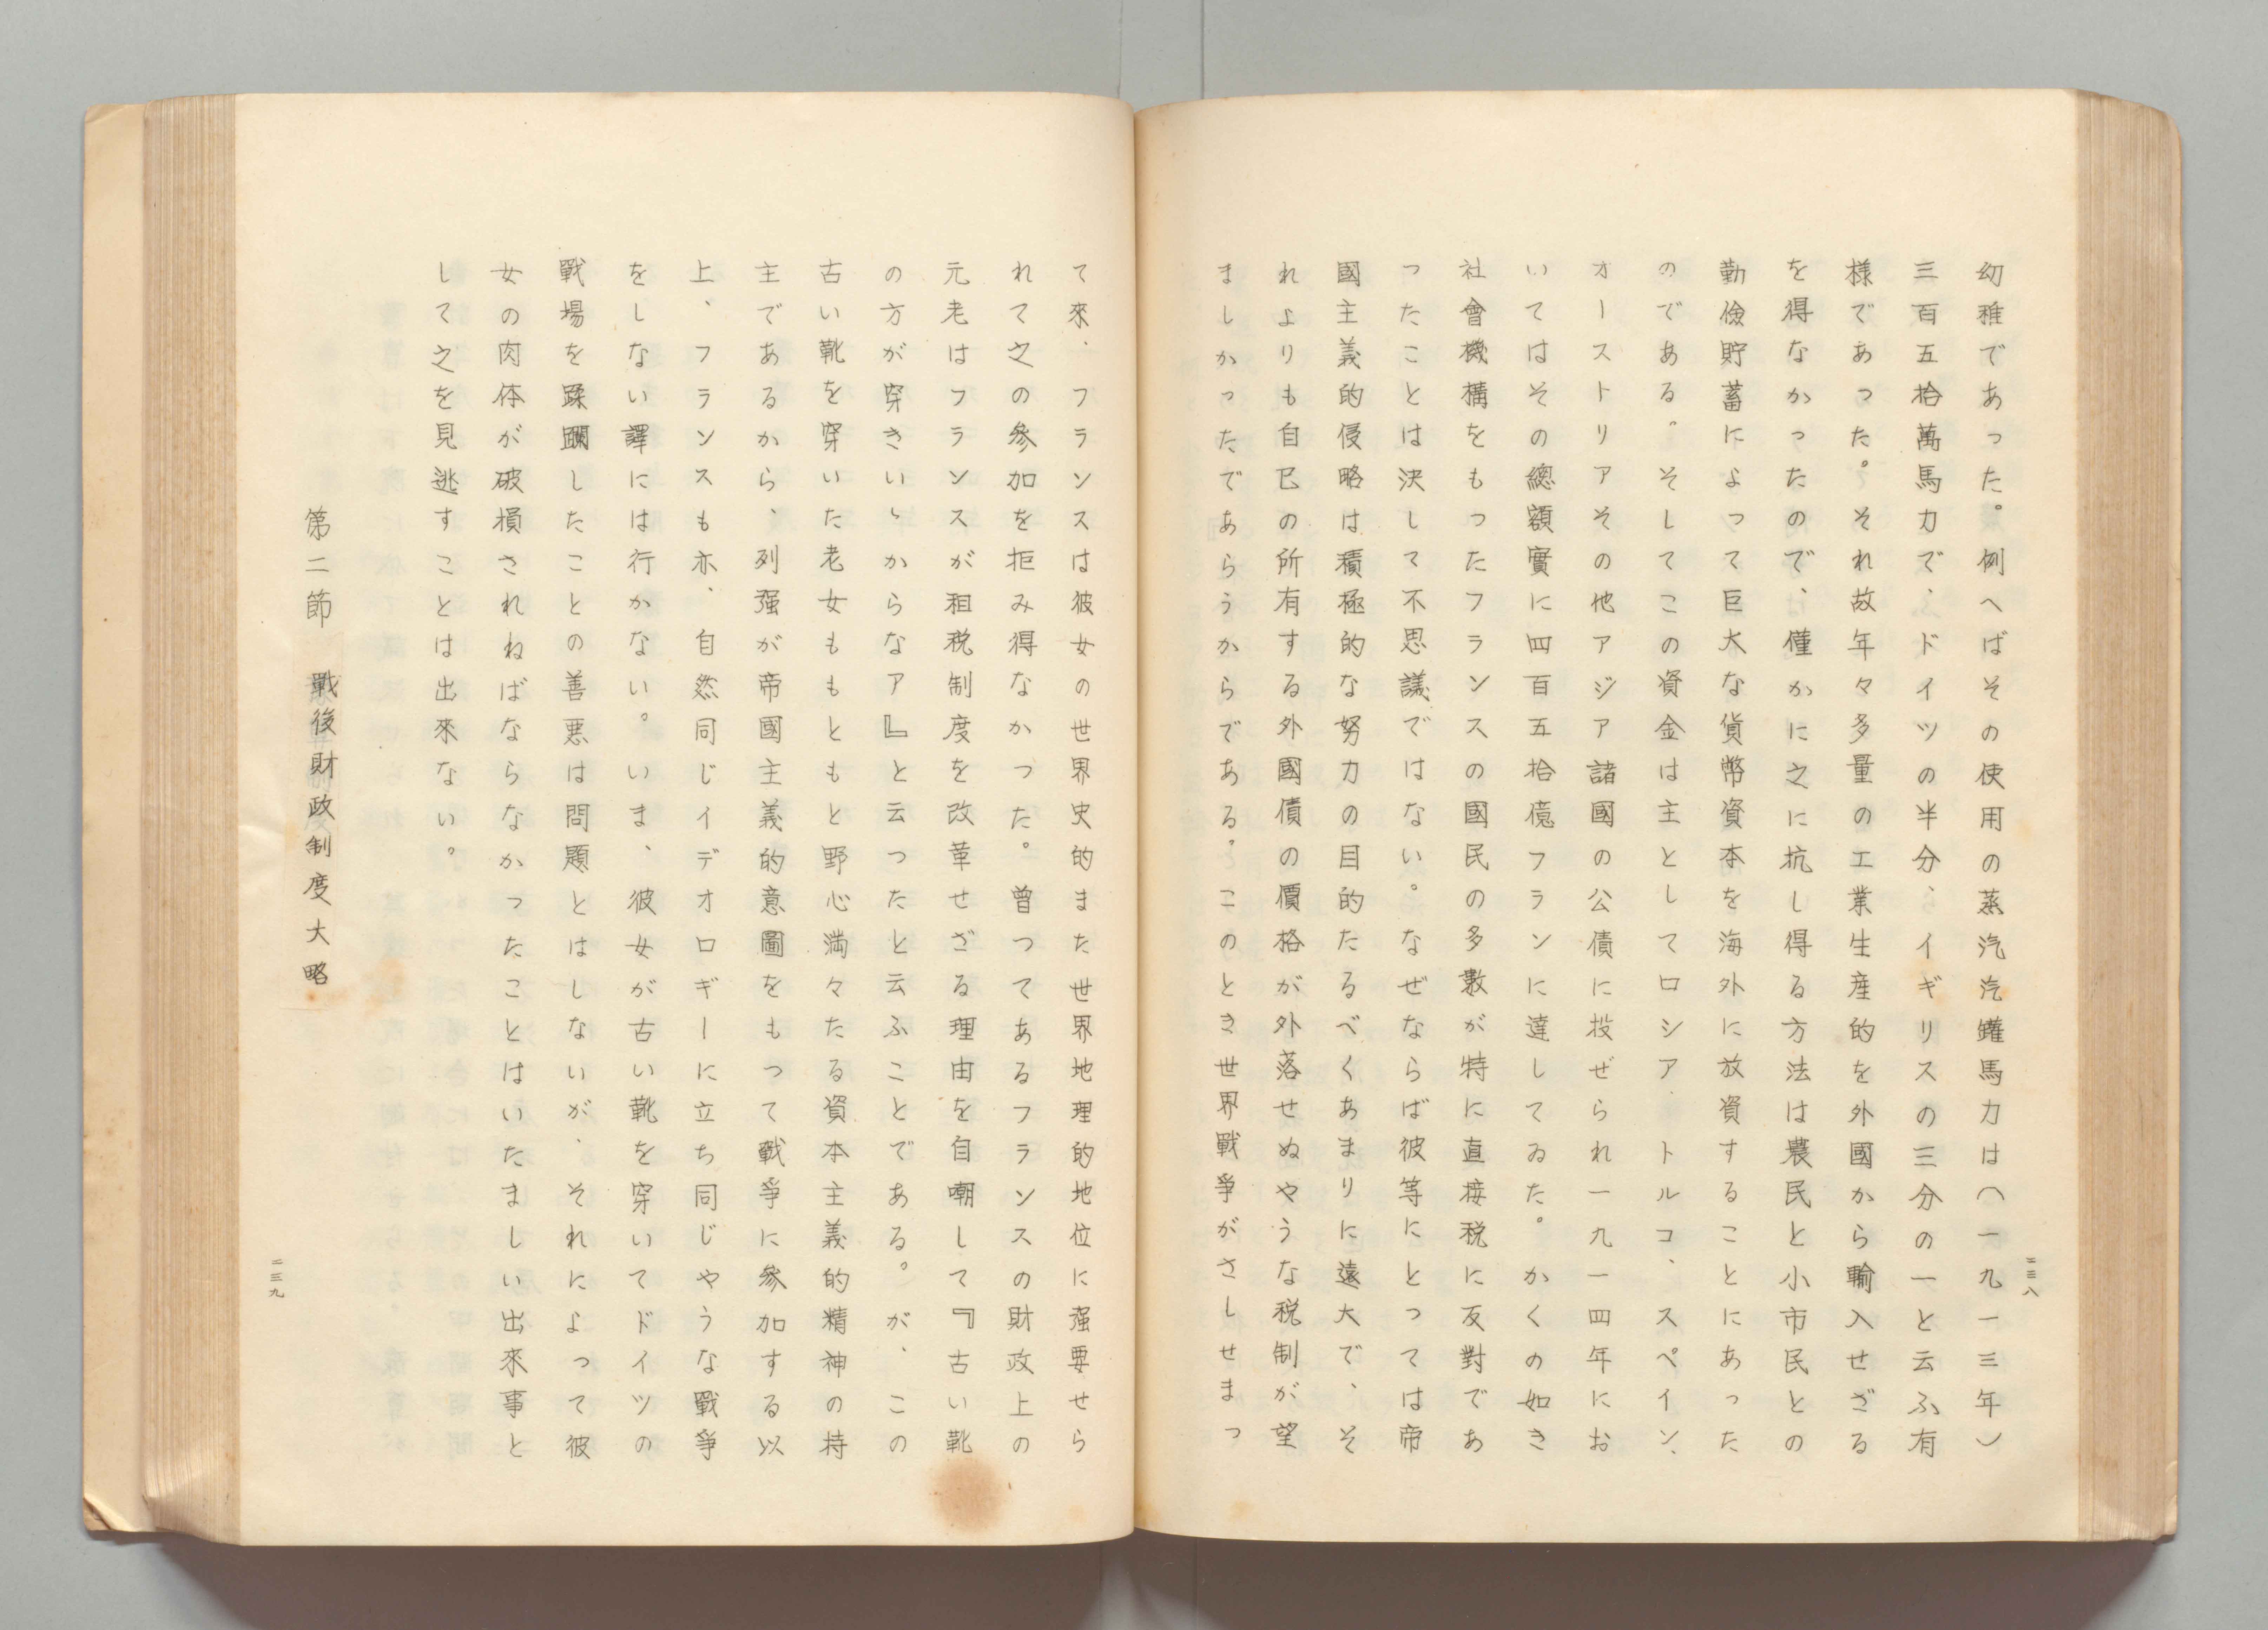 幼稚であった。例へばその使用の蒸汽汽罐馬力は（一九一三年）
三百五拾萬馬力で、ドイツの半分、イギリスの三分の一と云ふ有
様であった。それ故年々多量の工業生産的を外國から輸入せざる
を得なかったので、僅かに之に抗し得る方法は農民と小市民との
勤儉貯蓄によって巨大な貨幣資本を海外に放資することにあった
のである。そしてこの資金は主としてロシア、トルコ、スペイン、
オーストリアその他アジア諸國の公債に投ぜられ一九一四年にお
いてはその總額實に四百五拾億フランに達してゐた。かくの如き
社會機構をもったフランスの國民の多數が特に直接税に反對であ
つたことは決して不思議ではない。なぜならば彼等にとっては帝
國主義的侵略は積極的な努力の目的たるべくあまりに遠大で、そ
れよりも自己の所有する外國債の價格が外落せぬやうな税制が望
ましかったであらうからである。このとき世界戰爭がさしせまっ
二三八
て來、フランスは彼女の世界史的また世界地理的地位に强要せら
れて之の參加を拒み得なかつた。曾つてあるフランスの財政上の
元老はフランスが租税制度を改革せざる理由を自嘲して『古い靴
の方が穿きいゝからなア』と云つたと云ふことである。が、この
古い靴を穿いた老女ももともと野心満々たる資本主義的精神の持
主であるから、列强が帝國主義的意圖をもつて戰爭に參加する以
上、フランスも亦、自然同じイデオロギーに立ち同じやうな戰爭
をしない譯には行かない。いま、彼女が古い靴を穿いてドイツの
戰場を蹂躙したことの善悪は問題とはしないが、それによって彼
女の肉体が破損されねばならなかったことはいたましい出來事と
して之を見逃すことは出來ない。
第二節　戰後財政制度大略
二三九